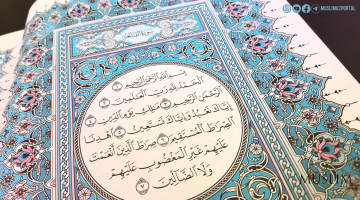 MUSLIMI.PORTAL
سورة الفاتحة
بسم الله الرحمن الرحيم ١
الحمد لله رب العالمين ٢
الرحمن الرحيم ٣ مالك يوم الدين ٤
إياك نعبد وإياك نستعين ٥ اهدنا
الصراط المستقيم ٦ صراط الذين أنعمت
عليهم غير المغضوب عليهم
ولا الضالين ٧